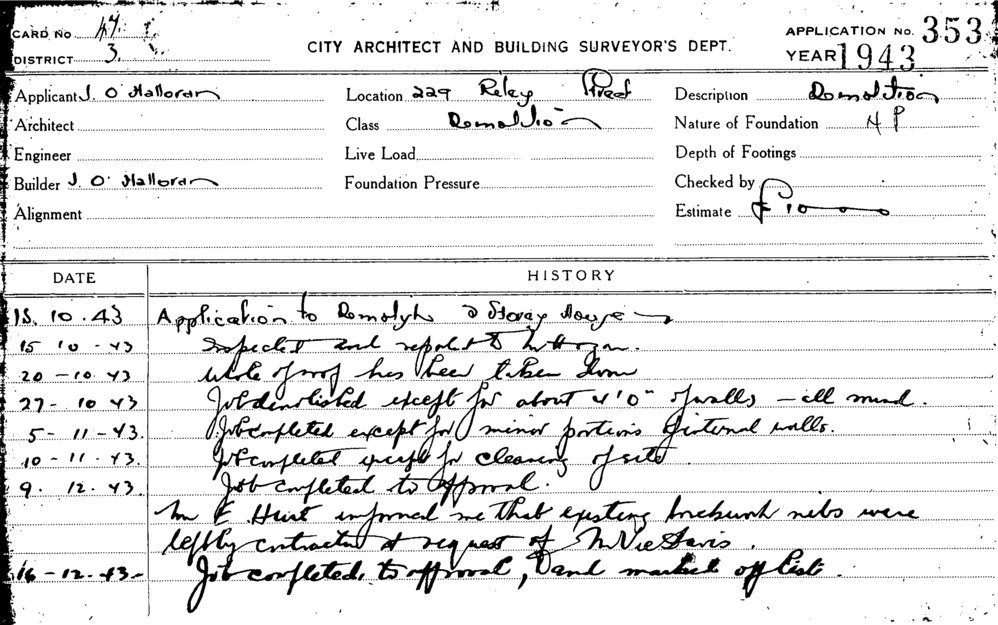 CARD NO 47.
DISTRICT 3.
CITY ARCHITECT AND BUILDING SURVEYOR'S DEPT.
APPLICATION No. 353
YEAR 1943
Applicant J. O'Halloran Location 229 Riley Street Description Demolition
Architect Class Demolition Nature of Foundation
Engineer Live Load Depth of Footings
Builder J. O'Halloran Foundation Pressure Checked by
Alignment Estimate £
DATE HISTORY
15. 10. 43 Application to Demolish 2 Storey House
15 10 - 43 Inspected and report to
20 - 10. 43 Whole of roof has been taken down
27 - 10 43 Job demolished except for about 4'0" of walls - all sound.
5 - 11 - 43. Job completed except for minor portions of internal walls.
10 - 11 - 43. Job completed except for cleaning of site.
9. 12. 43. Job completed to approval.
Mr E. Hurt informed me that existing brickwork nibs were
left by contractor at request of
16 - 12. 43 - Job completed, to approval, and marked off list.